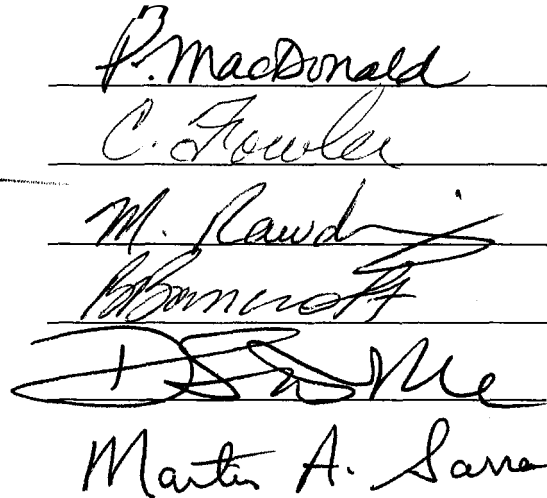 P. MacDonald
C. Fowler
M. Rawding
B Bancroft
Martin A. Sarra